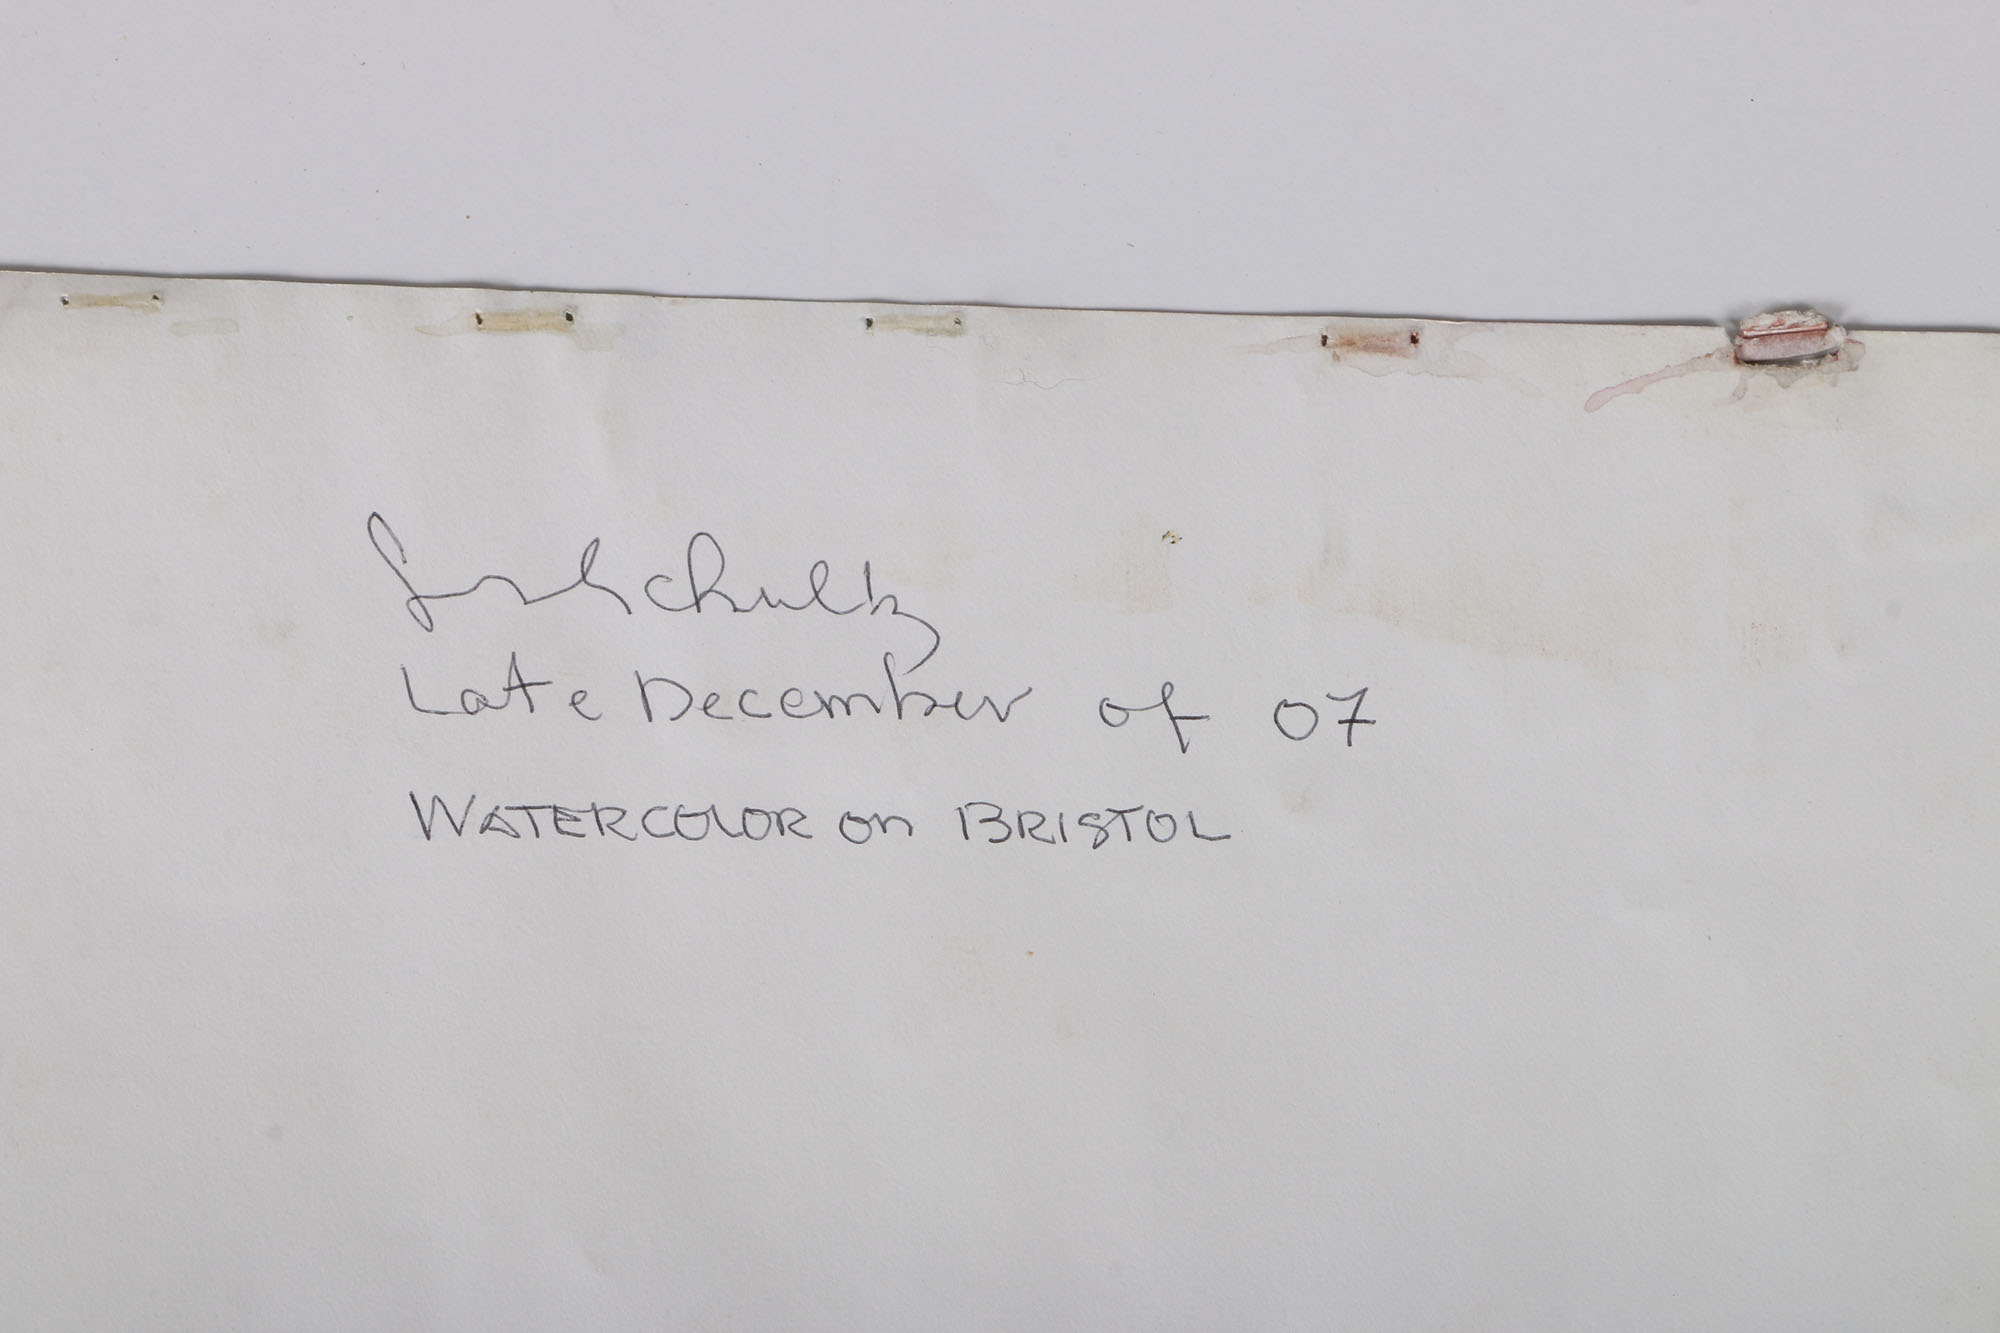 Schultz
Late December of 07
WATERCOLOR on BRISTOL